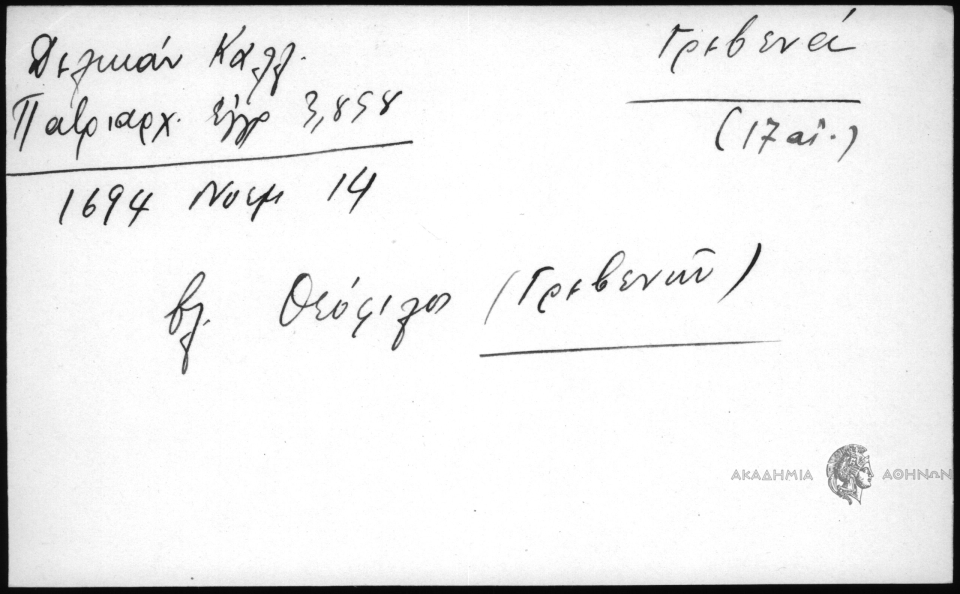 Δελικάν Καλλ.
Πατριαρχ. Εγγρ 3,858
1694 Νοεμ 14
Γρεβενά
(17 αἰ.)
βλ. Θεόφιλος (Γρεβενῶν)
ΑΚΑΔΗΜΙΑ ΑΘΗΝΩΝ